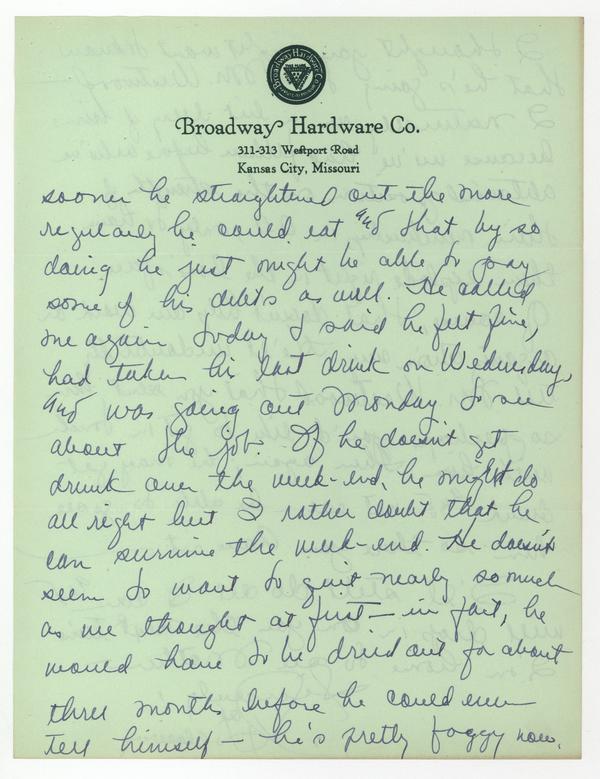 Broadway Hardware Co.
Broadway Hardware Co.
311-313 Westport Road
Kansas City, Missouri
sooner he straightened out the more
regularly he could eat and that by so
doing he just might be able to pay
some of his debts as well. He called
me again today & said he felt fine,
had taken his last drink on Wednesday,
and was going out Monday to see
about the job. If he doesn't get
drunk over the week-end, he might do
all right but I rather doubt that he
can survive the week-end. He doesn't
seem to want to quit nearly so much
as we thought at first — in fact, he
would have to be dried out for about
three months before he could even
tell himself — he's pretty foggy now.